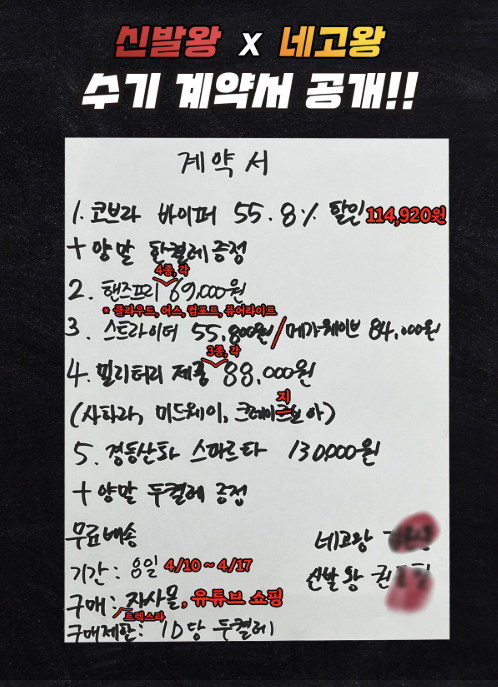 신발왕 x 네고왕
수기 계약서 공개!!
계약서
1. 코브라 바이퍼 55.8% 할인 114,920원
+ 양말 한켤레 증정
4종, 각
2. 핸즈프리 69,000원
* 클라우드, 어스, 컴포트, 퓨어라이트
3. 스트라이더 55,800원/메가웨이브 84,000원
3종, 각
4. 밀리터리 제품 88,000원
지
(사하라, 미드웨이, 아)
5. 경등산화 스파르타 130,000원
+ 양말 두켤레 증정
무료배송
네고왕
기간: 8일 4/10 ~ 4/17
신발왕 권
구매: 자사몰, 유튜브 쇼핑
트렉스타
구매제한: ID당 두켤레